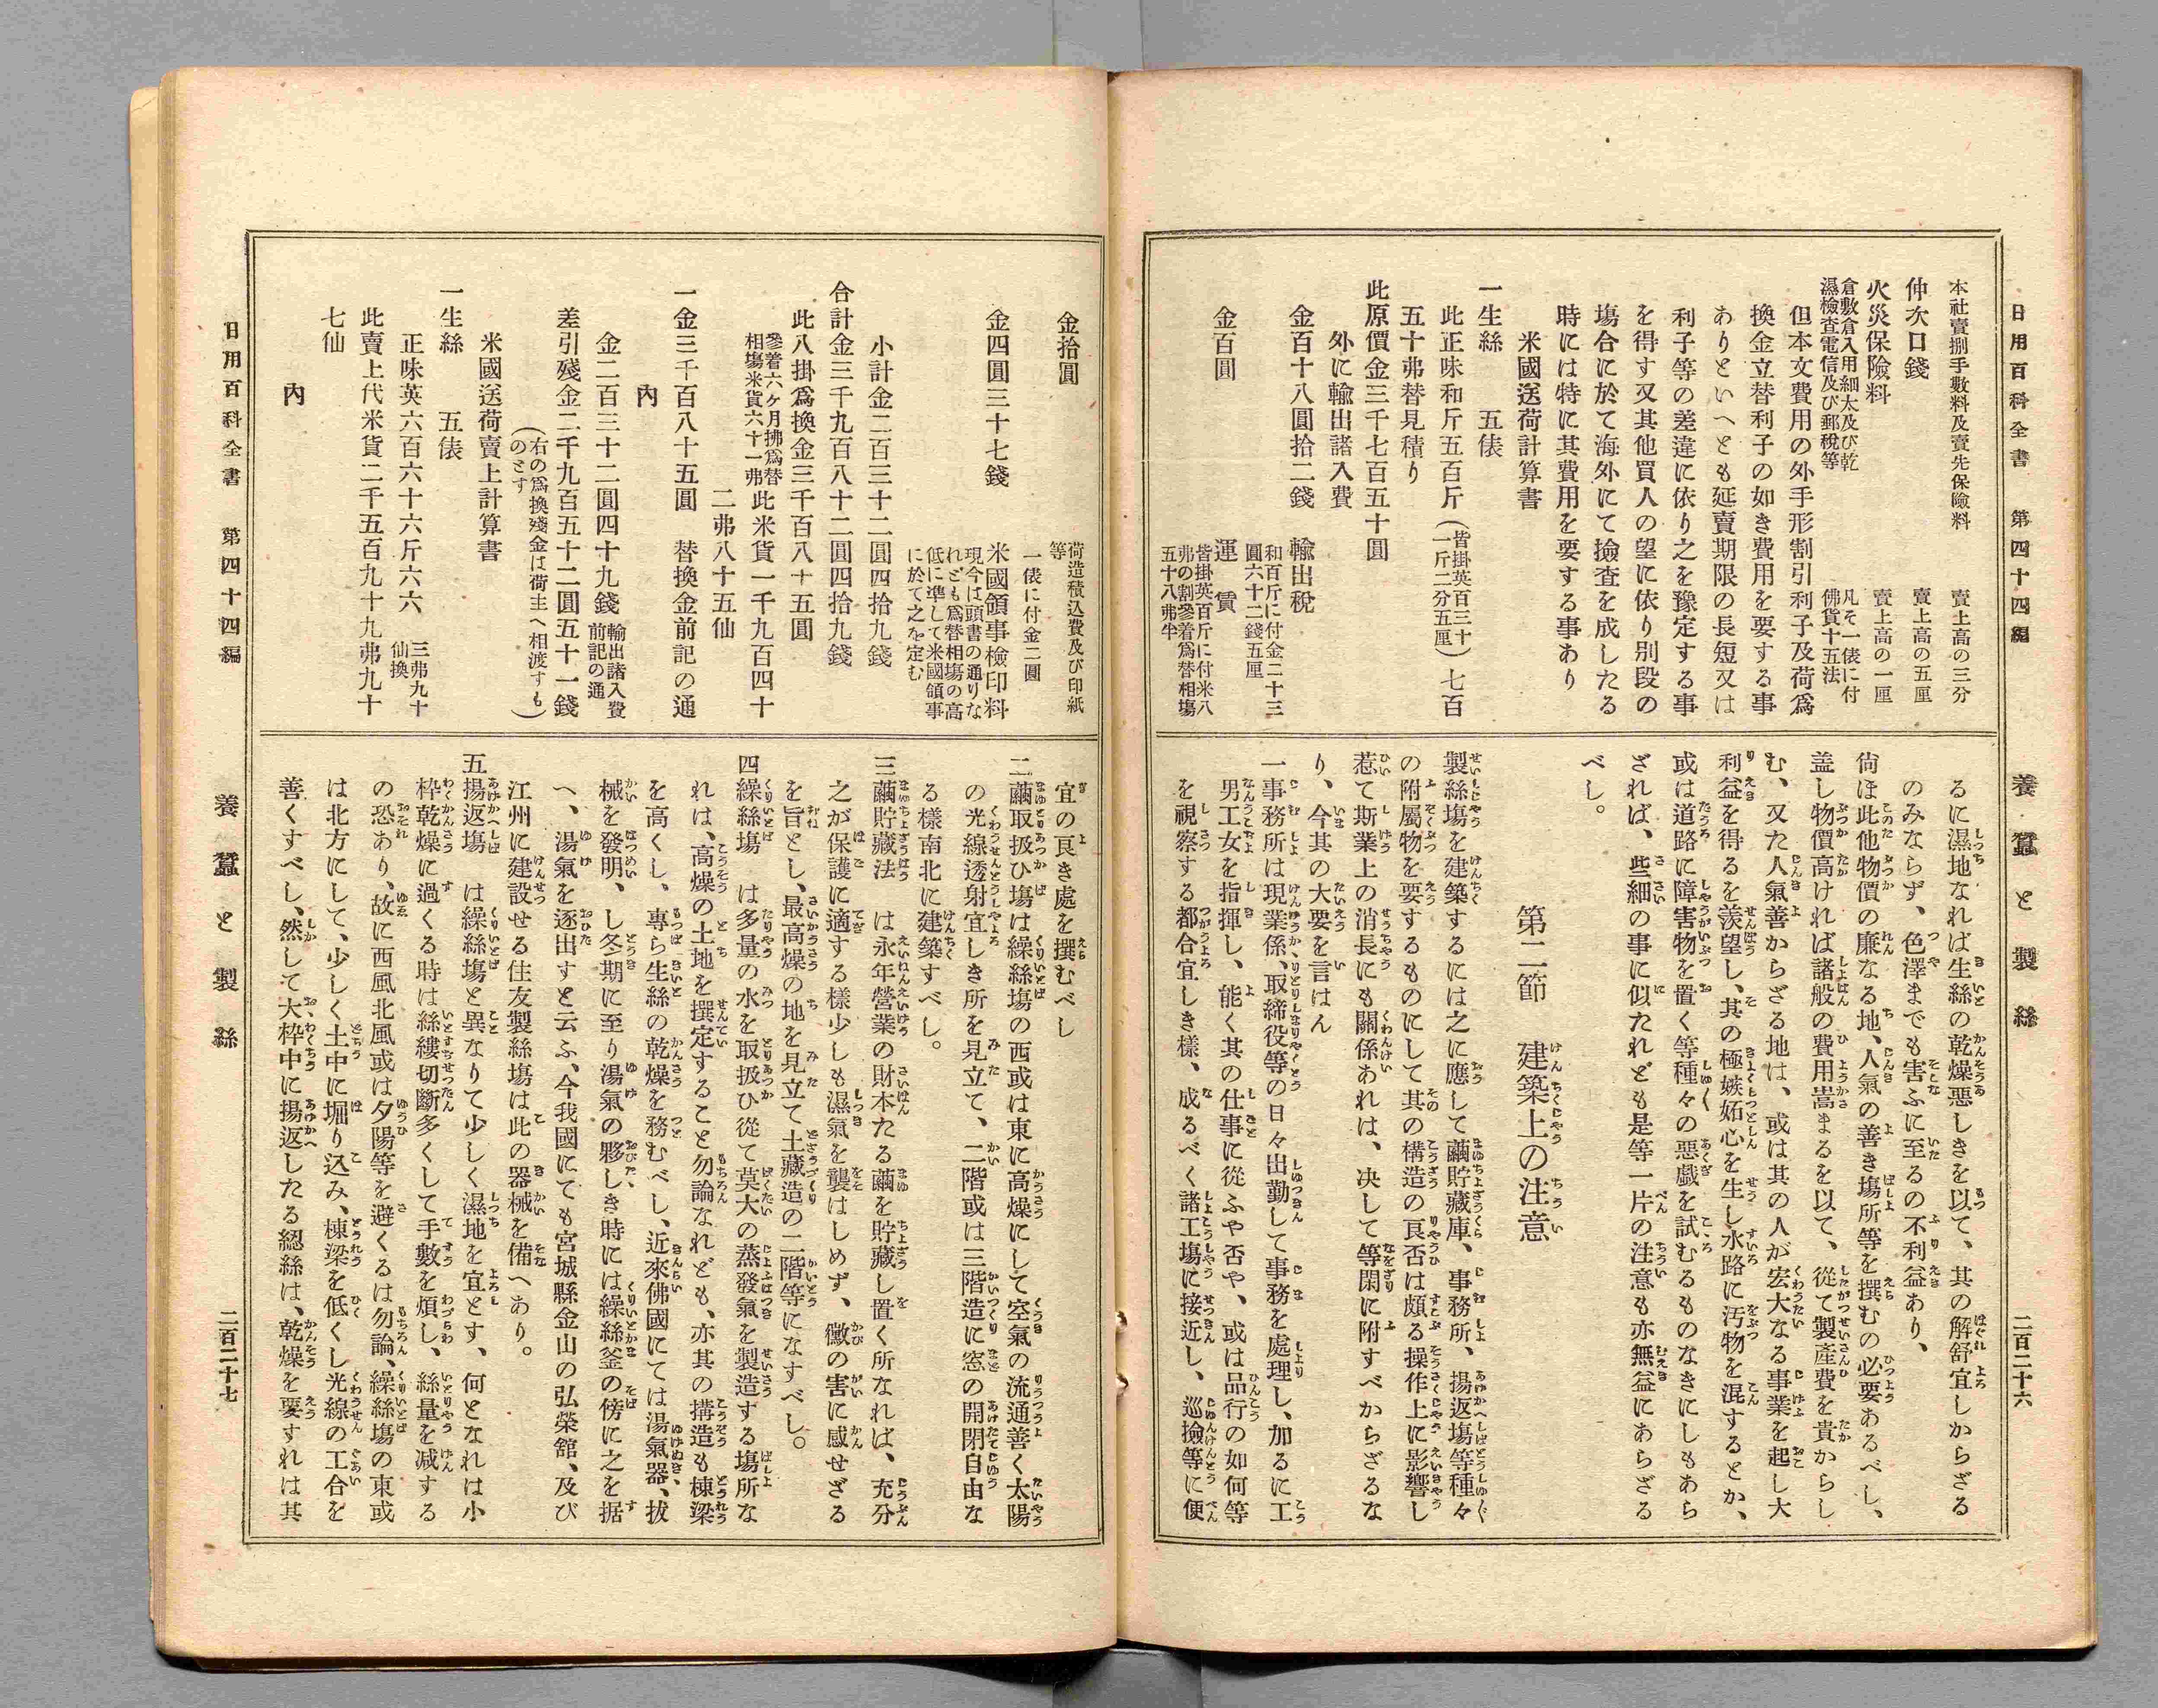 日用百科全書　第四十四編
養蠶と製絲
二百二十六
本社賣捌手數料及賣先保險料　賣上高の三分
仲次口錢　賣上高の五厘
火災保險料　賣上高の一厘
倉敷倉入用細太及び乾
濕檢査電信及び郵稅等　凡そ一俵に付
佛貨十五法
但本文費用の外手形割引利子及荷爲
換金立替利子の如き費用を要する事
ありといへとも延賣期限の長短又は
利子等の差違に依り之を豫定する事
を得す又其他買人の望に依り別段の
塲合に於て海外にて撿查を成したる
時には特に其費用を要する事あり
米國送荷計算書
一生絲　五俵
此正味和斤五百斤（皆掛英百三十
一斤二分五厘）七百
五十弗替見積り
此原價金三千七百五十圓
外に輸出諸入費
金百十八圓拾二錢　輸出稅
和百斤に付金二十三
圓六十二錢五厘
金百圓　運賃
皆掛英百斤に付米八
弗の割參着爲替相塲
五十八弗半
るに濕地なれば生絲の乾燥惡しきを以て、其の解舒宜しからざる
のみならず、色澤までも害ふに至るの不利益あり、
尙ほ此他物價の廉なる地、人氣の善き塲所等を撰むの必要あるべし、
盖し物價高ければ諸般の費用嵩まるを以て、從て製產費を貴からし
む、又た人氣善からざる地は、或は其の人が宏大なる事業を起し大
利益を得るを羨望し、其の極嫉妬心を生し水路に汚物を混するとか、
或は道路に障害物を置く等種々の惡戲を試むるものなきにしもあら
ざれば、些細の事に似たれども是等一片の注意も亦無益にあらざる
べし。
第二節　建築上の注意
製絲塲を建築するには之に應して繭貯藏庫、事務所、揚返塲等種々
の附屬物を要するものにして其の構造の良否は頗る操作上に影響し
惹て斯業上の消長にも關係あれは、决して等閑に附すべからざるな
り、今其の大要を言はん
一事務所は現業係、取締役等の日々出勤して事務を處理し、加るに工
男工女を指揮し、能く其の仕事に從ふや否や、或は品行の如何等
を視察する都合宜しき樣、成るべく諸工塲に接近し、巡撿等に便
金拾圓　荷造積込費及び印紙
等
一俵に付金二圓
金四圓三十七錢　米國領事檢印料
現今は頭書の通りな
れども爲替相塲の高
低に準して米國領事
に於て之を定む
小計金二百三十二圓四拾九錢
合計金三千九百八十二圓四拾九錢
此八掛爲換金三千百八十五圓
參着六ヶ月拂爲替
相塲米貨六十一弗　此米貨一千九百四十
二弗八十五仙
一金三千百八十五圓　替換金前記の通
內
金二百三十二圓四十九錢　輸出諸入費
前記の通
差引殘金二千九百五十二圓五十一錢
（右の爲換殘金は荷主へ相渡すも
のとす）
米國送荷賣上計算書
一生絲　五俵
正味英六百六十六斤六六　三弗九十
仙換
此賣上代米貨二千五百九十九弗九十
七仙
內
宜の良き處を撰むべし
二繭取扱ひ塲は繰絲塲の西或は東に高燥にして空氣の流通善く太陽
の光線透射宜しき所を見立て、二階或は三階造に窓の開閉自由な
る樣南北に建築すべし。
三繭貯藏法　は永年營業の財本たる繭を貯藏し置く所なれば、充分
之が保護に適する樣少しも濕氣を襲はしめず、黴の害に感せざる
を旨とし、最高燥の地を見立て土藏造の二階等になすべし。
四繰絲塲　は多量の水を取扱ひ從て莫大の蒸發氣を製造する塲所な
れは、高燥の土地を撰定すること勿論なれども、亦其の搆造も棟梁
を高くし、專ら生絲の乾燥を務むべし、近來佛國にては湯氣器、拔
械を發明、し冬期に至り湯氣の夥しき時には繰絲釜の傍に之を据
へ、湯氣を逐出すと云ふ、今我國にても宮城縣金山の弘榮舘、及び
江州に建設せる住友製絲塲は此の器械を備へあり。
五揚返塲　は繰絲塲と異なりて少しく濕地を宜とす、何となれは小
枠乾燥に過くる時は絲縷切斷多くして手數を煩し、絲量を减する
の恐あり、故に西風北風或は夕陽等を避くるは勿論、繰絲塲の東或
は北方にして、少しく土中に堀り込み、棟梁を低くし光線の工合を
善くすべし、然して大枠中に揚返したる総絲は、乾燥を要すれは其
日用百科全書　第四十四編
養蠶と製絲
二百二十七